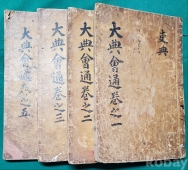 吏典
大典會通卷之一
大典會通卷之二
大典會通卷之三
大典會通卷之五
Kobay